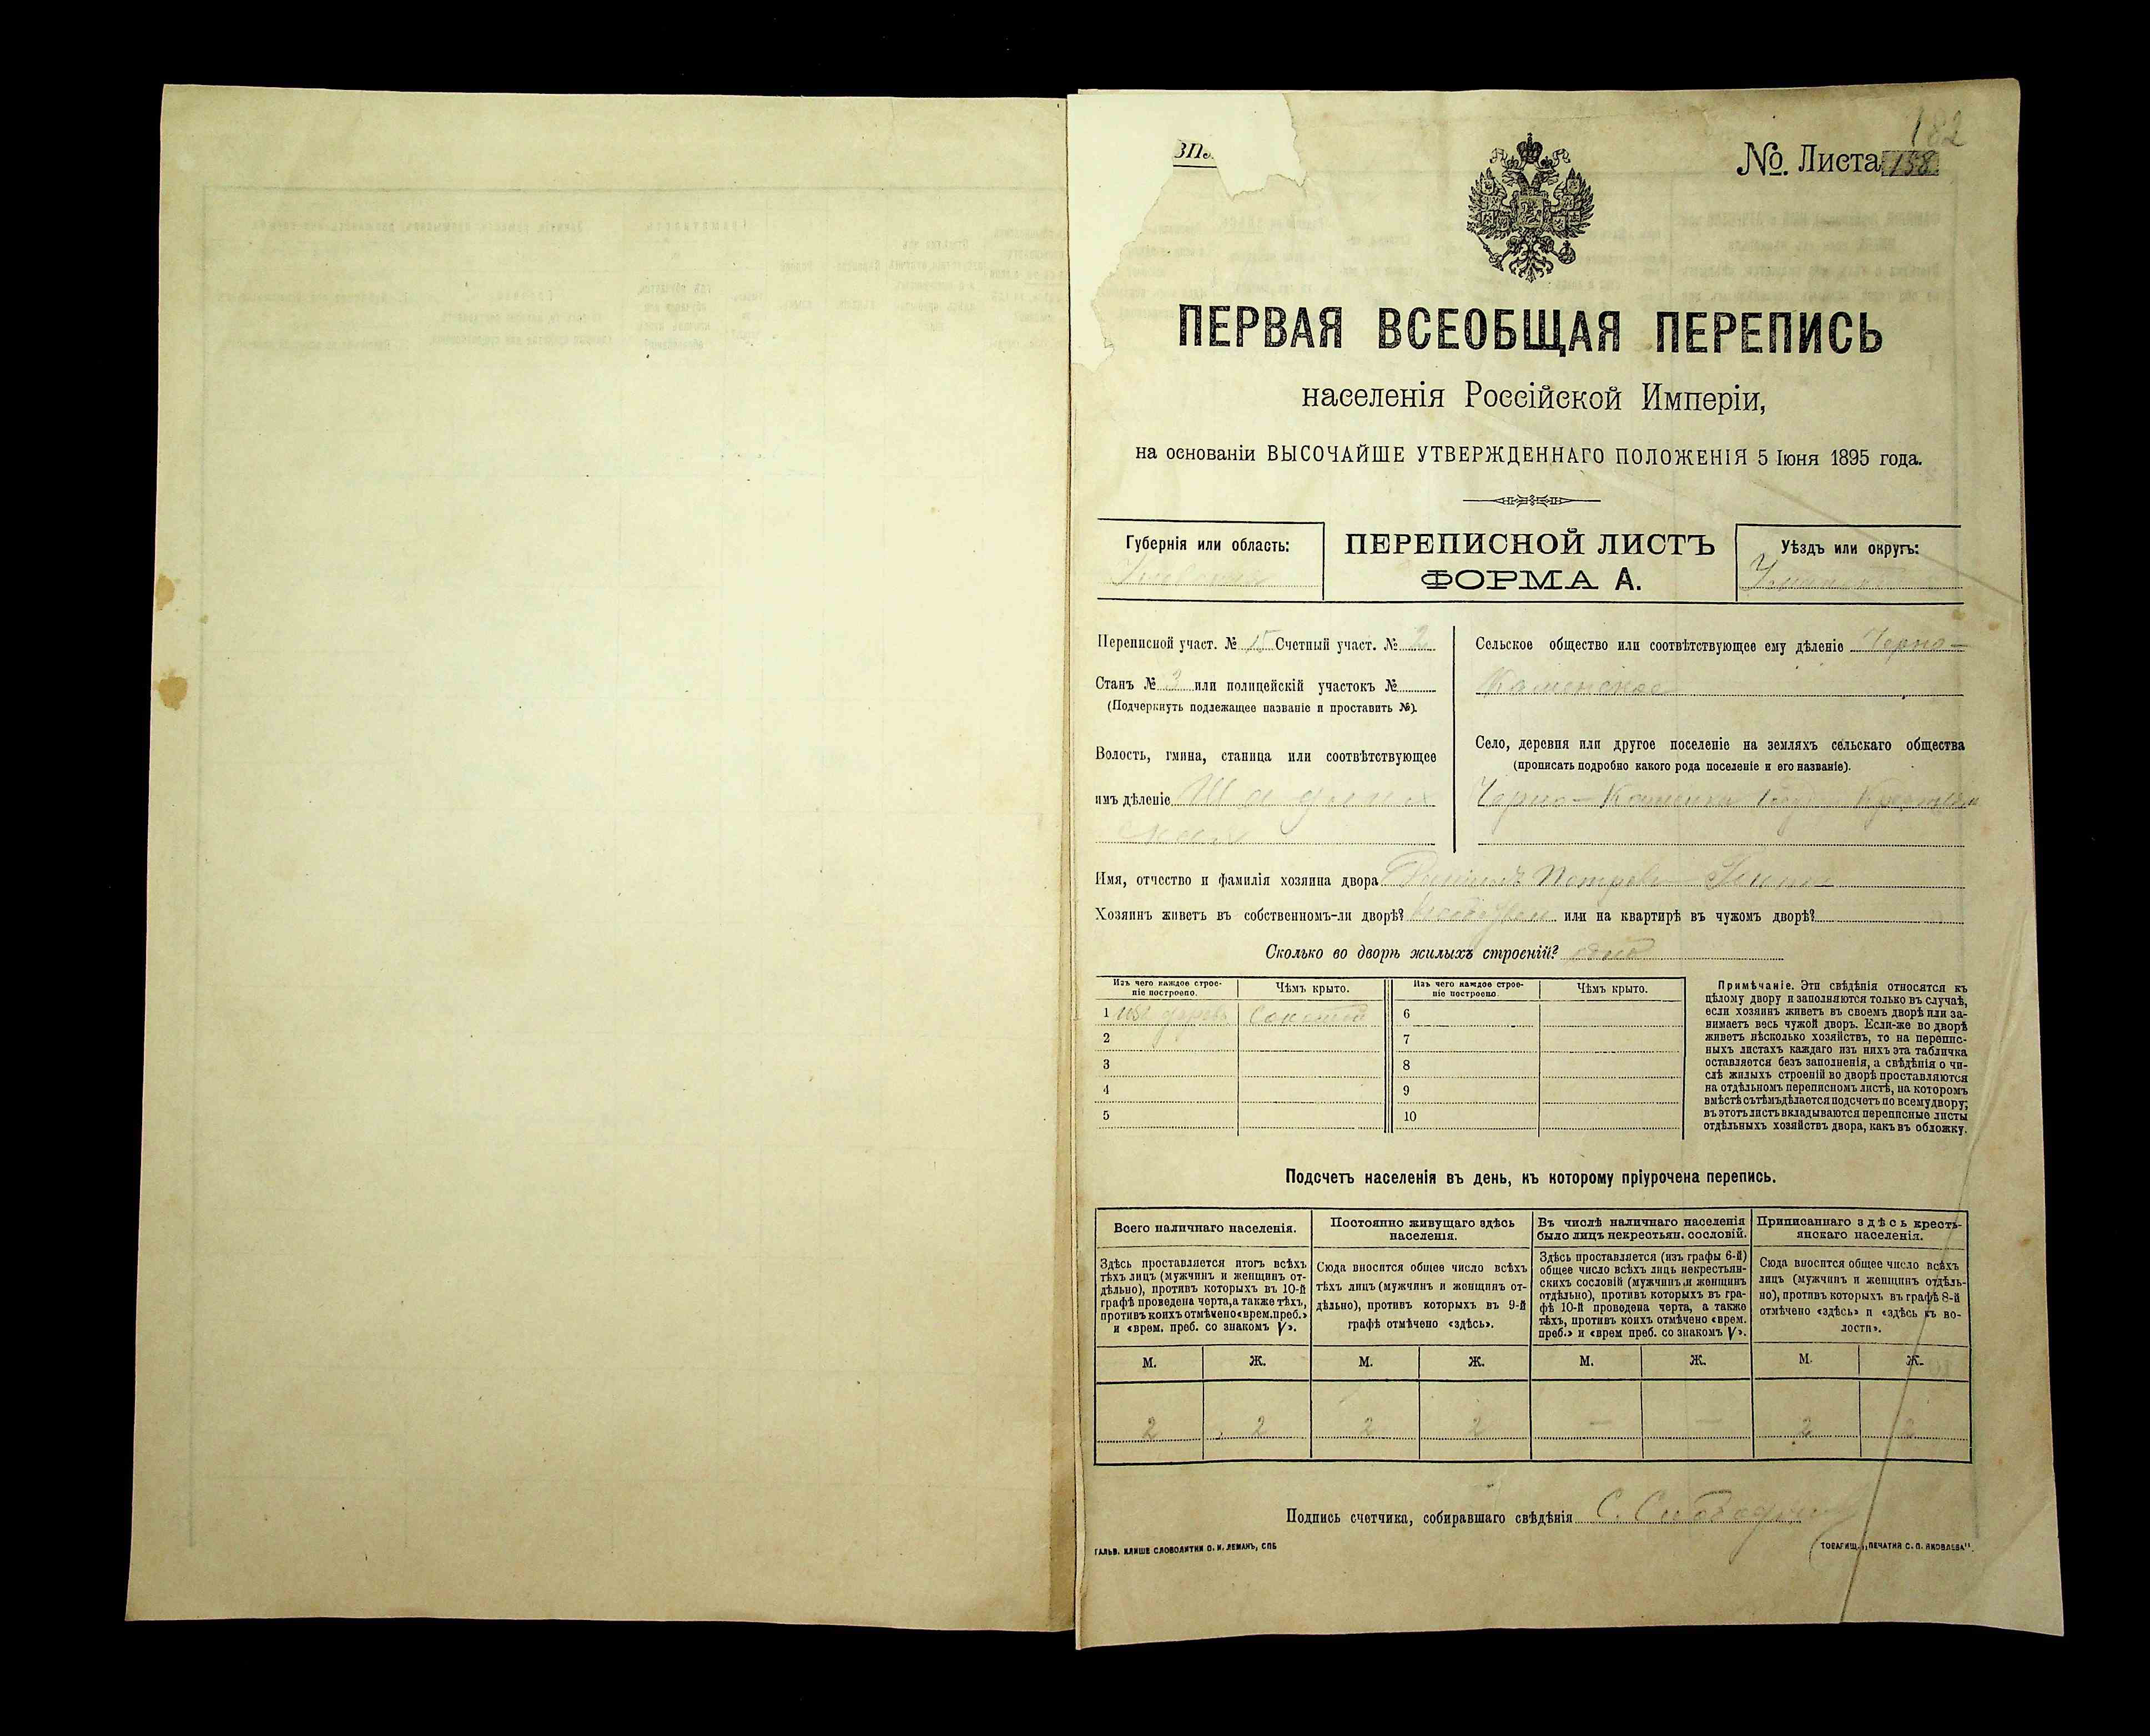 182
№ Листа 158
ПЕРВАЯ ВСЕОБЩАЯ ПЕРЕПИСЬ
населенія Россійской Имперіи,
на основаніи ВЫСОЧАЙШЕ УТВЕРЖДЕННАГО ПОЛОЖЕНІЯ 5 Іюня 1895 года.
Губернія или область:
ПЕРЕПИСНОЙ ЛИСТЪ
ФОРМА А.
Уѣздъ или округъ:
Переписной участ. № 15 Счетный участ. № 2
Станъ № 3 или полицейскій участокъ №
(Подчеркнуть подлежащее названіе и проставить №).
Волость, гмина, станица или соотвѣтствующее
имъ дѣленіе
Сельское общество или соотвѣтствующее ему дѣленіе Черно-
Каменское
Село, деревня или другое поселеніе на земляхъ сельскаго общества
(прописать подробно какого рода поселеніе и его названіе).
Черно-Каменка
Имя, отчество и фамилія хозяина двора
Хозяинъ живетъ въ собственномъ-ли дворѣ? или на квартирѣ въ чужомъ дворѣ?
Сколько во дворѣ жилыхъ строеній? одно
Изъ чего каждое строе-
ніе построено.
Чѣмъ крыто.
Изъ чего каждое строе-
ніе построено.
Чѣмъ крыто.
1 изъ дерева Соломой 6
2 7
3 8
4 9
5 10
Примѣчаніе. Эти свѣдѣнія относятся къ
цѣлому двору и заполняются только въ случаѣ,
если хозяинъ живетъ въ своемъ дворѣ или за-
нимаетъ весь чужой дворъ. Если-же во дворѣ
живетъ нѣсколько хозяйствъ, то на перепис-
ныхъ листахъ каждаго изъ нихъ эта табличка
оставляется безъ заполненія, а свѣдѣнія о чи-
слѣ жилыхъ строеній во дворѣ проставляются
на отдѣльномъ переписномъ листѣ, на которомъ
вмѣстѣ съ тѣмъ дѣлается подсчетъ по всему двору;
въ этотъ листъ вкладываются переписные листы
отдѣльныхъ хозяйствъ двора, какъ въ обложку.
Подсчетъ населенія въ день, къ которому пріурочена перепись.
Всего наличнаго населенія.
Здѣсь проставляется итогъ всѣхъ
тѣхъ лицъ (мужчинъ и женщинъ от-
дѣльно), противъ которыхъ въ 10-й
графѣ проведена черта, а также тѣхъ,
противъ коихъ отмѣчено «врем. преб.»
и «врем. преб. со знакомъ V».
Постоянно живущаго здѣсь
населенія.
Сюда вносится общее число всѣхъ
тѣхъ лицъ (мужчинъ и женщинъ от-
дѣльно), противъ которыхъ въ 9-й
графѣ отмѣчено «здѣсь».
Въ числѣ наличнаго населенія
было лицъ некрестьян. сословій.
Здѣсь проставляется (изъ графы 6-й)
общее число всѣхъ лицъ некрестьян-
скихъ сословій (мужчинъ и женщинъ
отдѣльно), противъ которыхъ въ гра-
фѣ 10-й проведена черта, а также
тѣхъ, противъ коихъ отмѣчено «врем.
преб.» и «врем преб. со знакомъ V».
Приписаннаго здѣсь кресть-
янскаго населенія.
Сюда вносится общее число всѣхъ
лицъ (мужчинъ и женщинъ отдѣль-
но), противъ которыхъ въ графѣ 8-й
отмѣчено «здѣсь» и «здѣсь въ во-
лости».
М. Ж. М. Ж. М. Ж. М. Ж.
2 2 2 2 — — 2 2
Подпись счетчика, собиравшаго свѣдѣнія
ГАЛЬВ. КЛИШЕ СЛОВОЛИТНИ О. И. ЛЕМАНЪ, СПБ
ТОВАРИЩ. „ПЕЧАТНЯ С. П. ЯКОВЛЕВА".